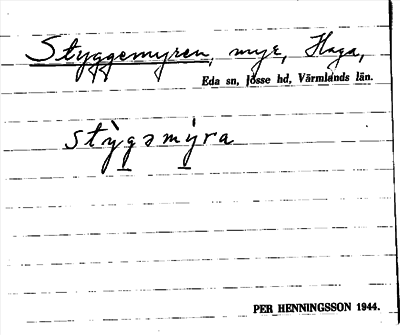 Styggemyren, myr, Haga,
Eda sn, Jösse hd, Värmlands län.
stỳgəmỳra
PER HENNINGSSON 1944.